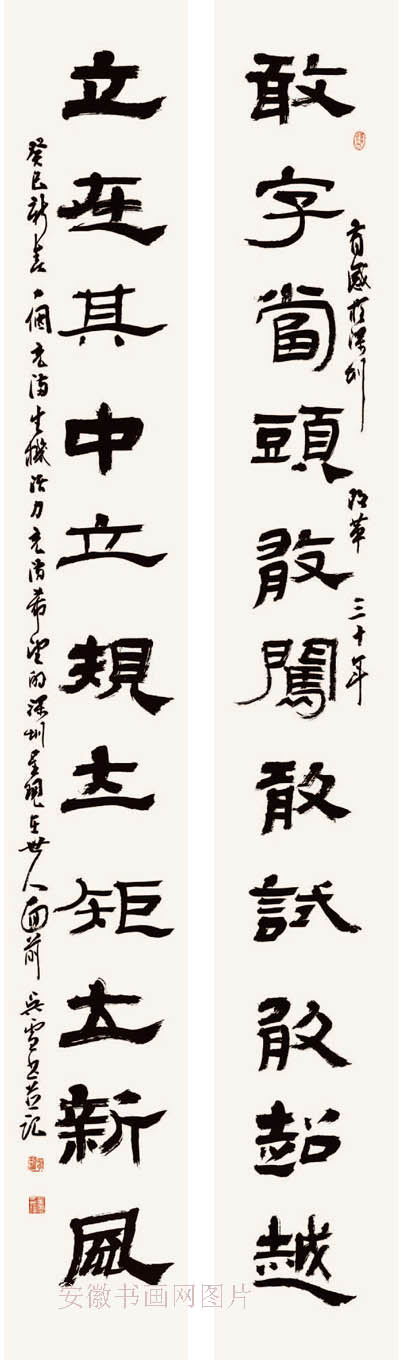 敢字當頭敢闖敢試敢超越
有感於深圳改革三十年
立在其中立規立矩立新風
癸巳新春一個充滿生機活力充滿希望的深圳呈現在世人面前 吳雪書並記
安徽书画网图片